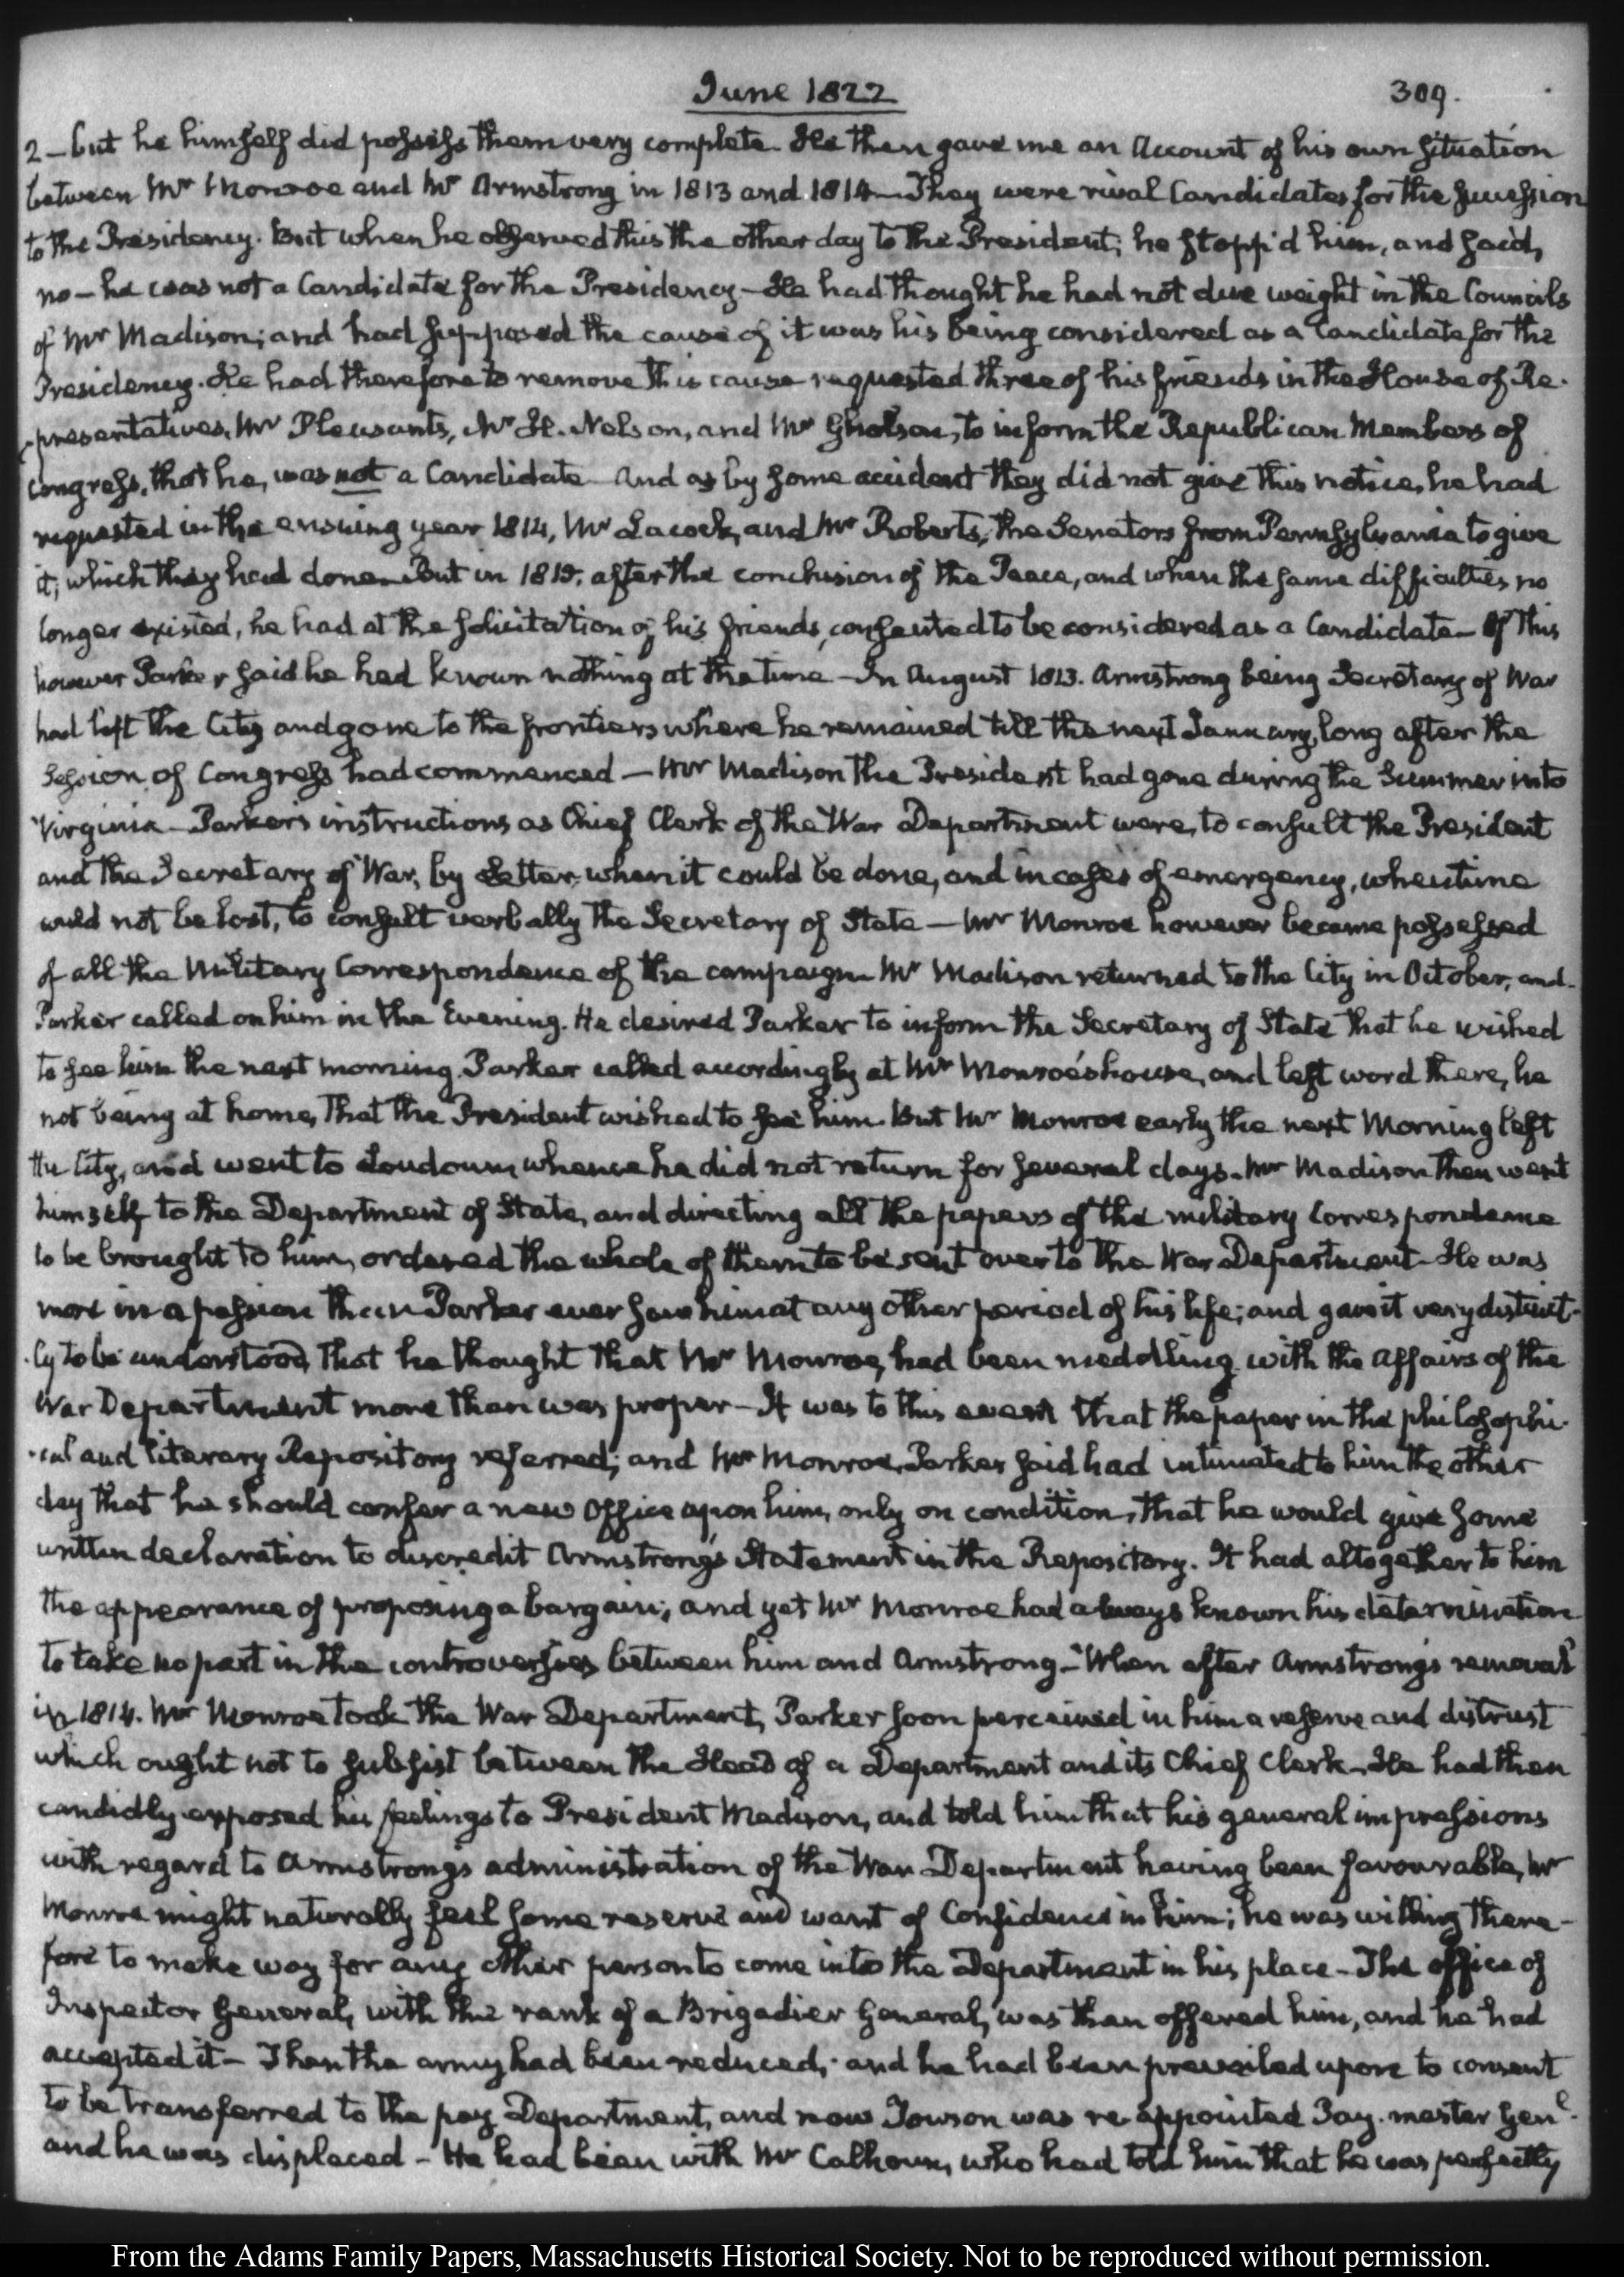 June 1822 309.
2 - but he himself did possess them very complete. He then gave me an Account of his own situation
between Mr Monroe and Mr Armstrong in 1813 and 1814 - They were rival Candidates for the succession
to the Presidency. But when he observed this the other day to the President; he stopp'd him, and said,
no - he was not a Candidate for the Presidency - He had thought he had not due weight in the Councils
of Mr Madison; and had supposed the cause of it was his being considered as a Candidate for the
Presidency. He had therefore to remove this cause requested three of his friends in the House of Re-
-presentatives, Mr Pleasants, Mr H. Nelson, and Mr Gholson, to inform the Republican Members of
Congress, that he, was not a Candidate - And as by some accident they did not give this notice, he had
requested in the ensuing year 1814, Mr Lacock, and Mr Roberts, the Senators from Pennsylvania to give
it; which they had done. But in 1815. after the conclusion of the Peace, and when the same difficulties no
longer existed, he had at the solicitation of his friends, consented to be considered as a Candidate - Of this
however Parker said he had known nothing at the time - In August 1813. Armstrong being Secretary of War
had left the City and gone to the frontiers where he remained till the next January, long after the
Session of Congress had commenced - Mr Madison the President had gone during the Summer into
Virginia - Parker's instructions as Chief Clerk of the War Department were, to consult the President
and the Secretary of War, by Letter, when it could be done, and in cases of emergency, when time
could not be lost, to consult verbally the Secretary of State - Mr Monroe however became possessed
of all the Military Correspondence of the campaign. Mr Madison returned to the City in October, and
Parker called on him in the Evening. He desired Parker to inform the Secretary of State that he wished
to see him the next morning. Parker called accordingly at Mr Monroe's house, and left word there, he
not being at home, that the President wished to see him. But Mr Monroe early the next Morning left
the City, and went to Loudoun, whence he did not return for several days. Mr Madison then went
himself to the Department of State, and directing all the papers of the military Correspondence
to be brought to him, ordered the whole of them to be sent over to the War Department - He was
more in a passion than Parker ever saw him at any other period of his life; and gave it very distinct-
-ly to be understood, that he thought that Mr Monroe, had been meddling with the affairs of the
War Department more than was proper - It was to this event that the paper in the philosophi-
-cal and literary Repository referred; and Mr Monroe, Parker said had intimated to him the other
day that he should confer a new Office upon him, only on condition, that he would give some
written declaration to discredit Armstrong's Statement in the Repository. It had altogether to him
the appearance of proposing a bargain; and yet Mr Monroe had always known his determination
to take no part in the controversies between him and Armstrong - When after Armstrong's removal
in 1814. Mr Monroe took the War Department, Parker soon perceived in him a reserve and distrust
which ought not to subsist between the Head of a Department and its Chief Clerk - He had then
candidly exposed his feelings to President Madison, and told him that his general impressions
with regard to Armstrong's administration of the War Department having been favourable, Mr
Monroe might naturally feel some reserve and want of Confidence in him; he was willing there-
fore to make way for any other person to come into the Department in his place - The office of
Inspector General, with the rank of a Brigadier General, was then offered him, and he had
accepted it - Then the army had been reduced; and he had been prevailed upon to consent
to be transferred to the pay Department, and now Towson was re-appointed Pay-master Genl.
and he was displaced - He had been with Mr Calhoun, who had told him that he was perfectly
From the Adams Family Papers, Massachusetts Historical Society. Not to be reproduced without permission.